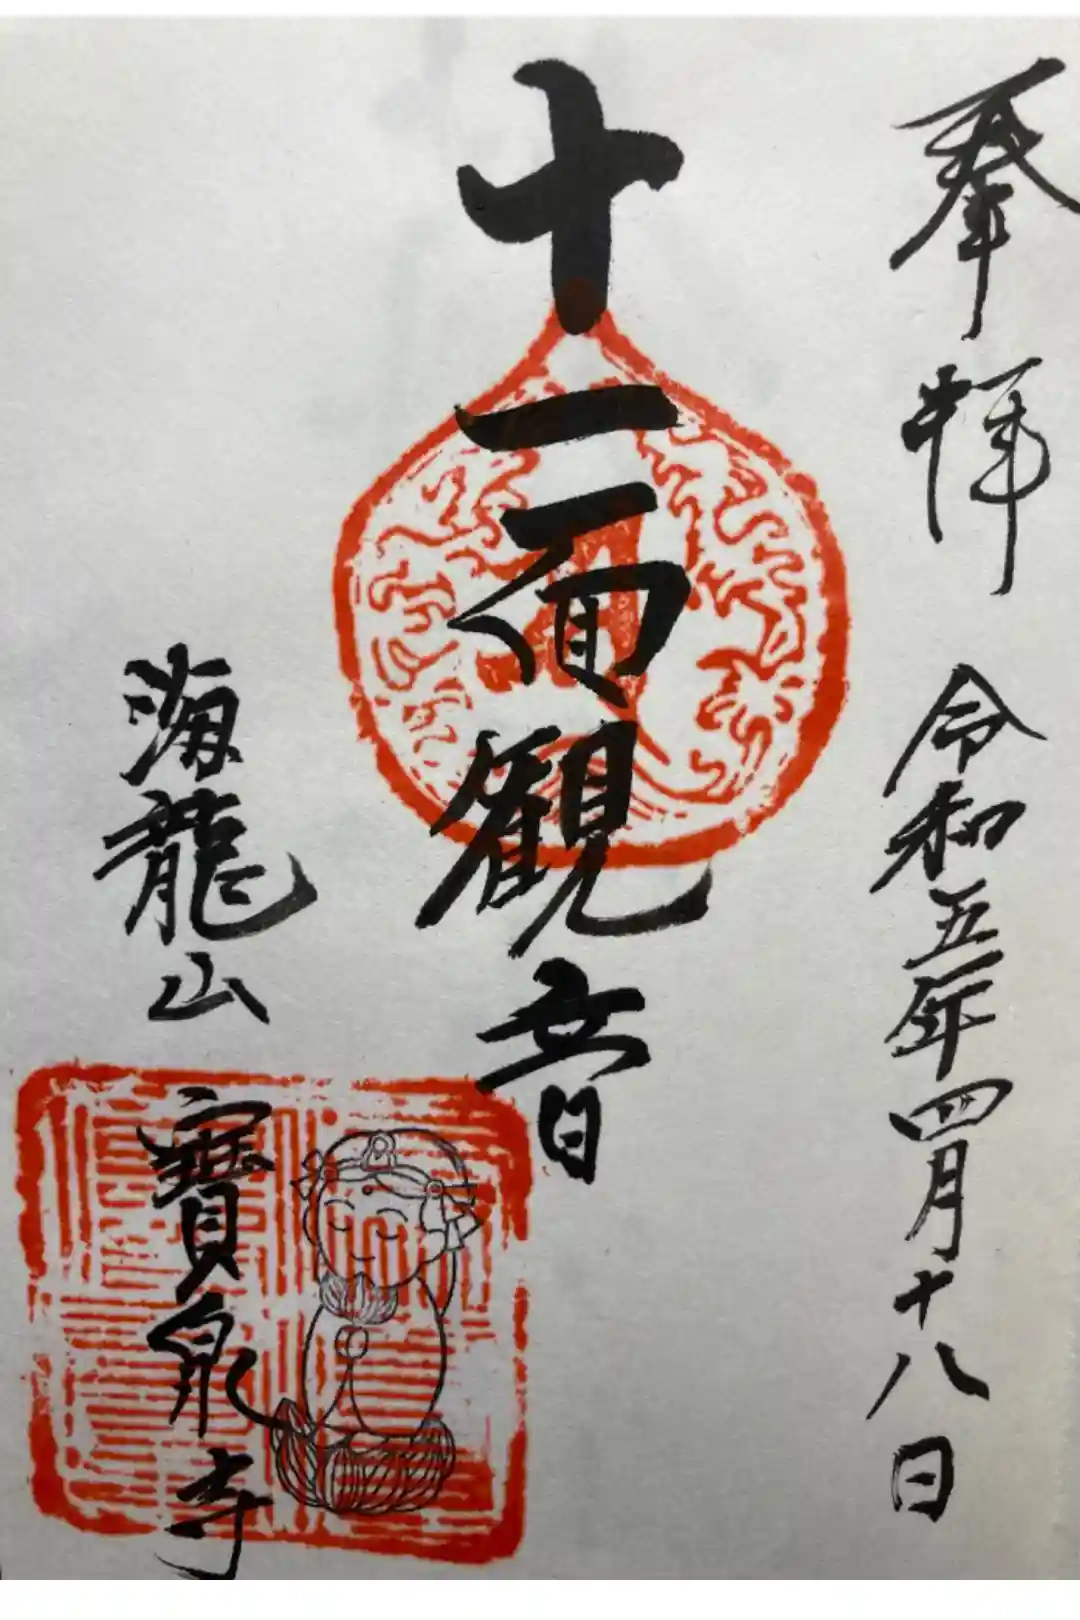 奉拝 令和五年四月十八日
十一面観音
海龍山 寶泉寺